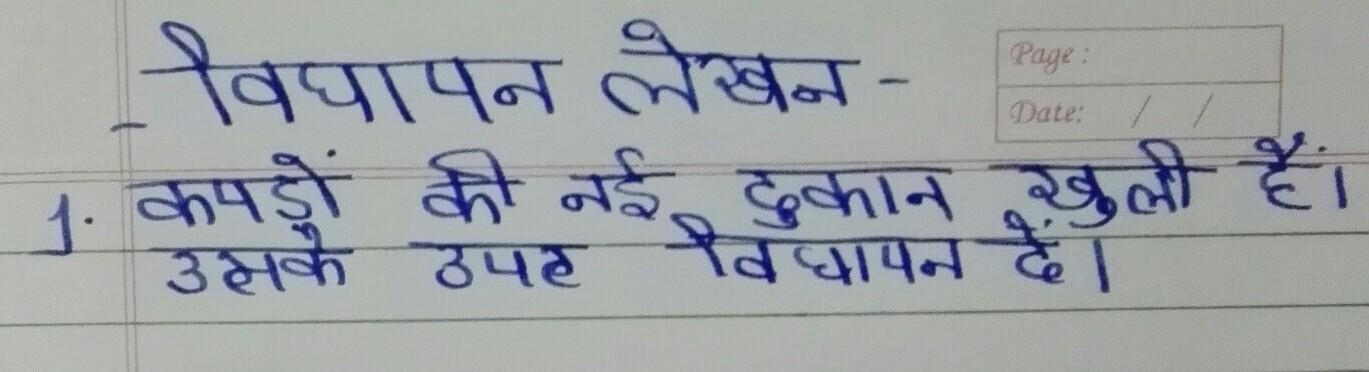 विधापन लेखन -
Page :
Date: / /
1. कपड़ों की नई दुकान खुली हैं।
उसके उपर विधापन दें।